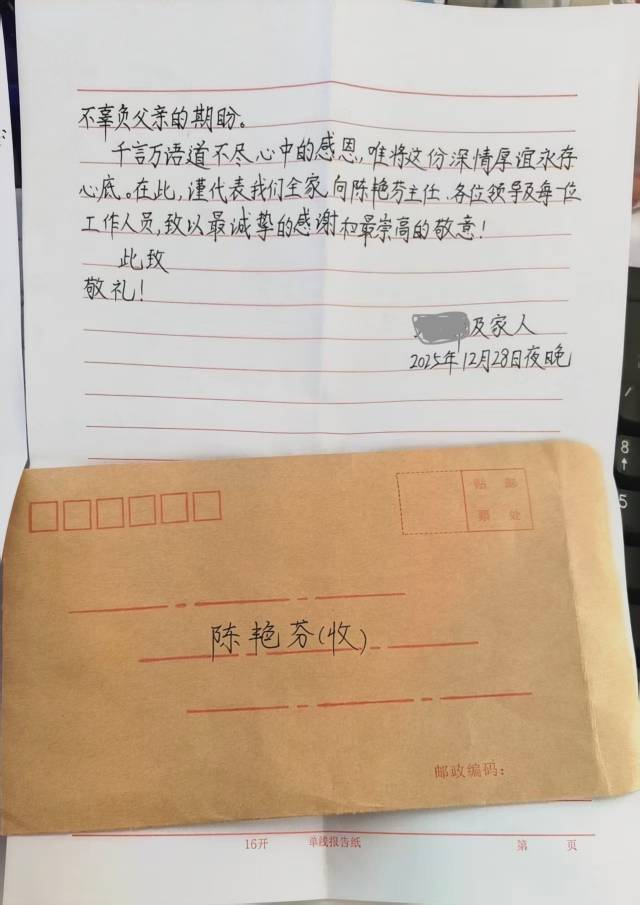 不辜负父亲的期盼。
千言万语道不尽心中的感恩,唯将这份深情厚谊永存
心底。在此,谨代表我们全家向陈艳芬主任、各位领导及每一位
工作人员,致以最诚挚的感谢和最崇高的敬意!
此致
敬礼!
及家人
2025年12月28日夜晚
贴 邮
票 处
陈艳芬(收)
邮政编码:
16开 单线报告纸 第 页
8
5